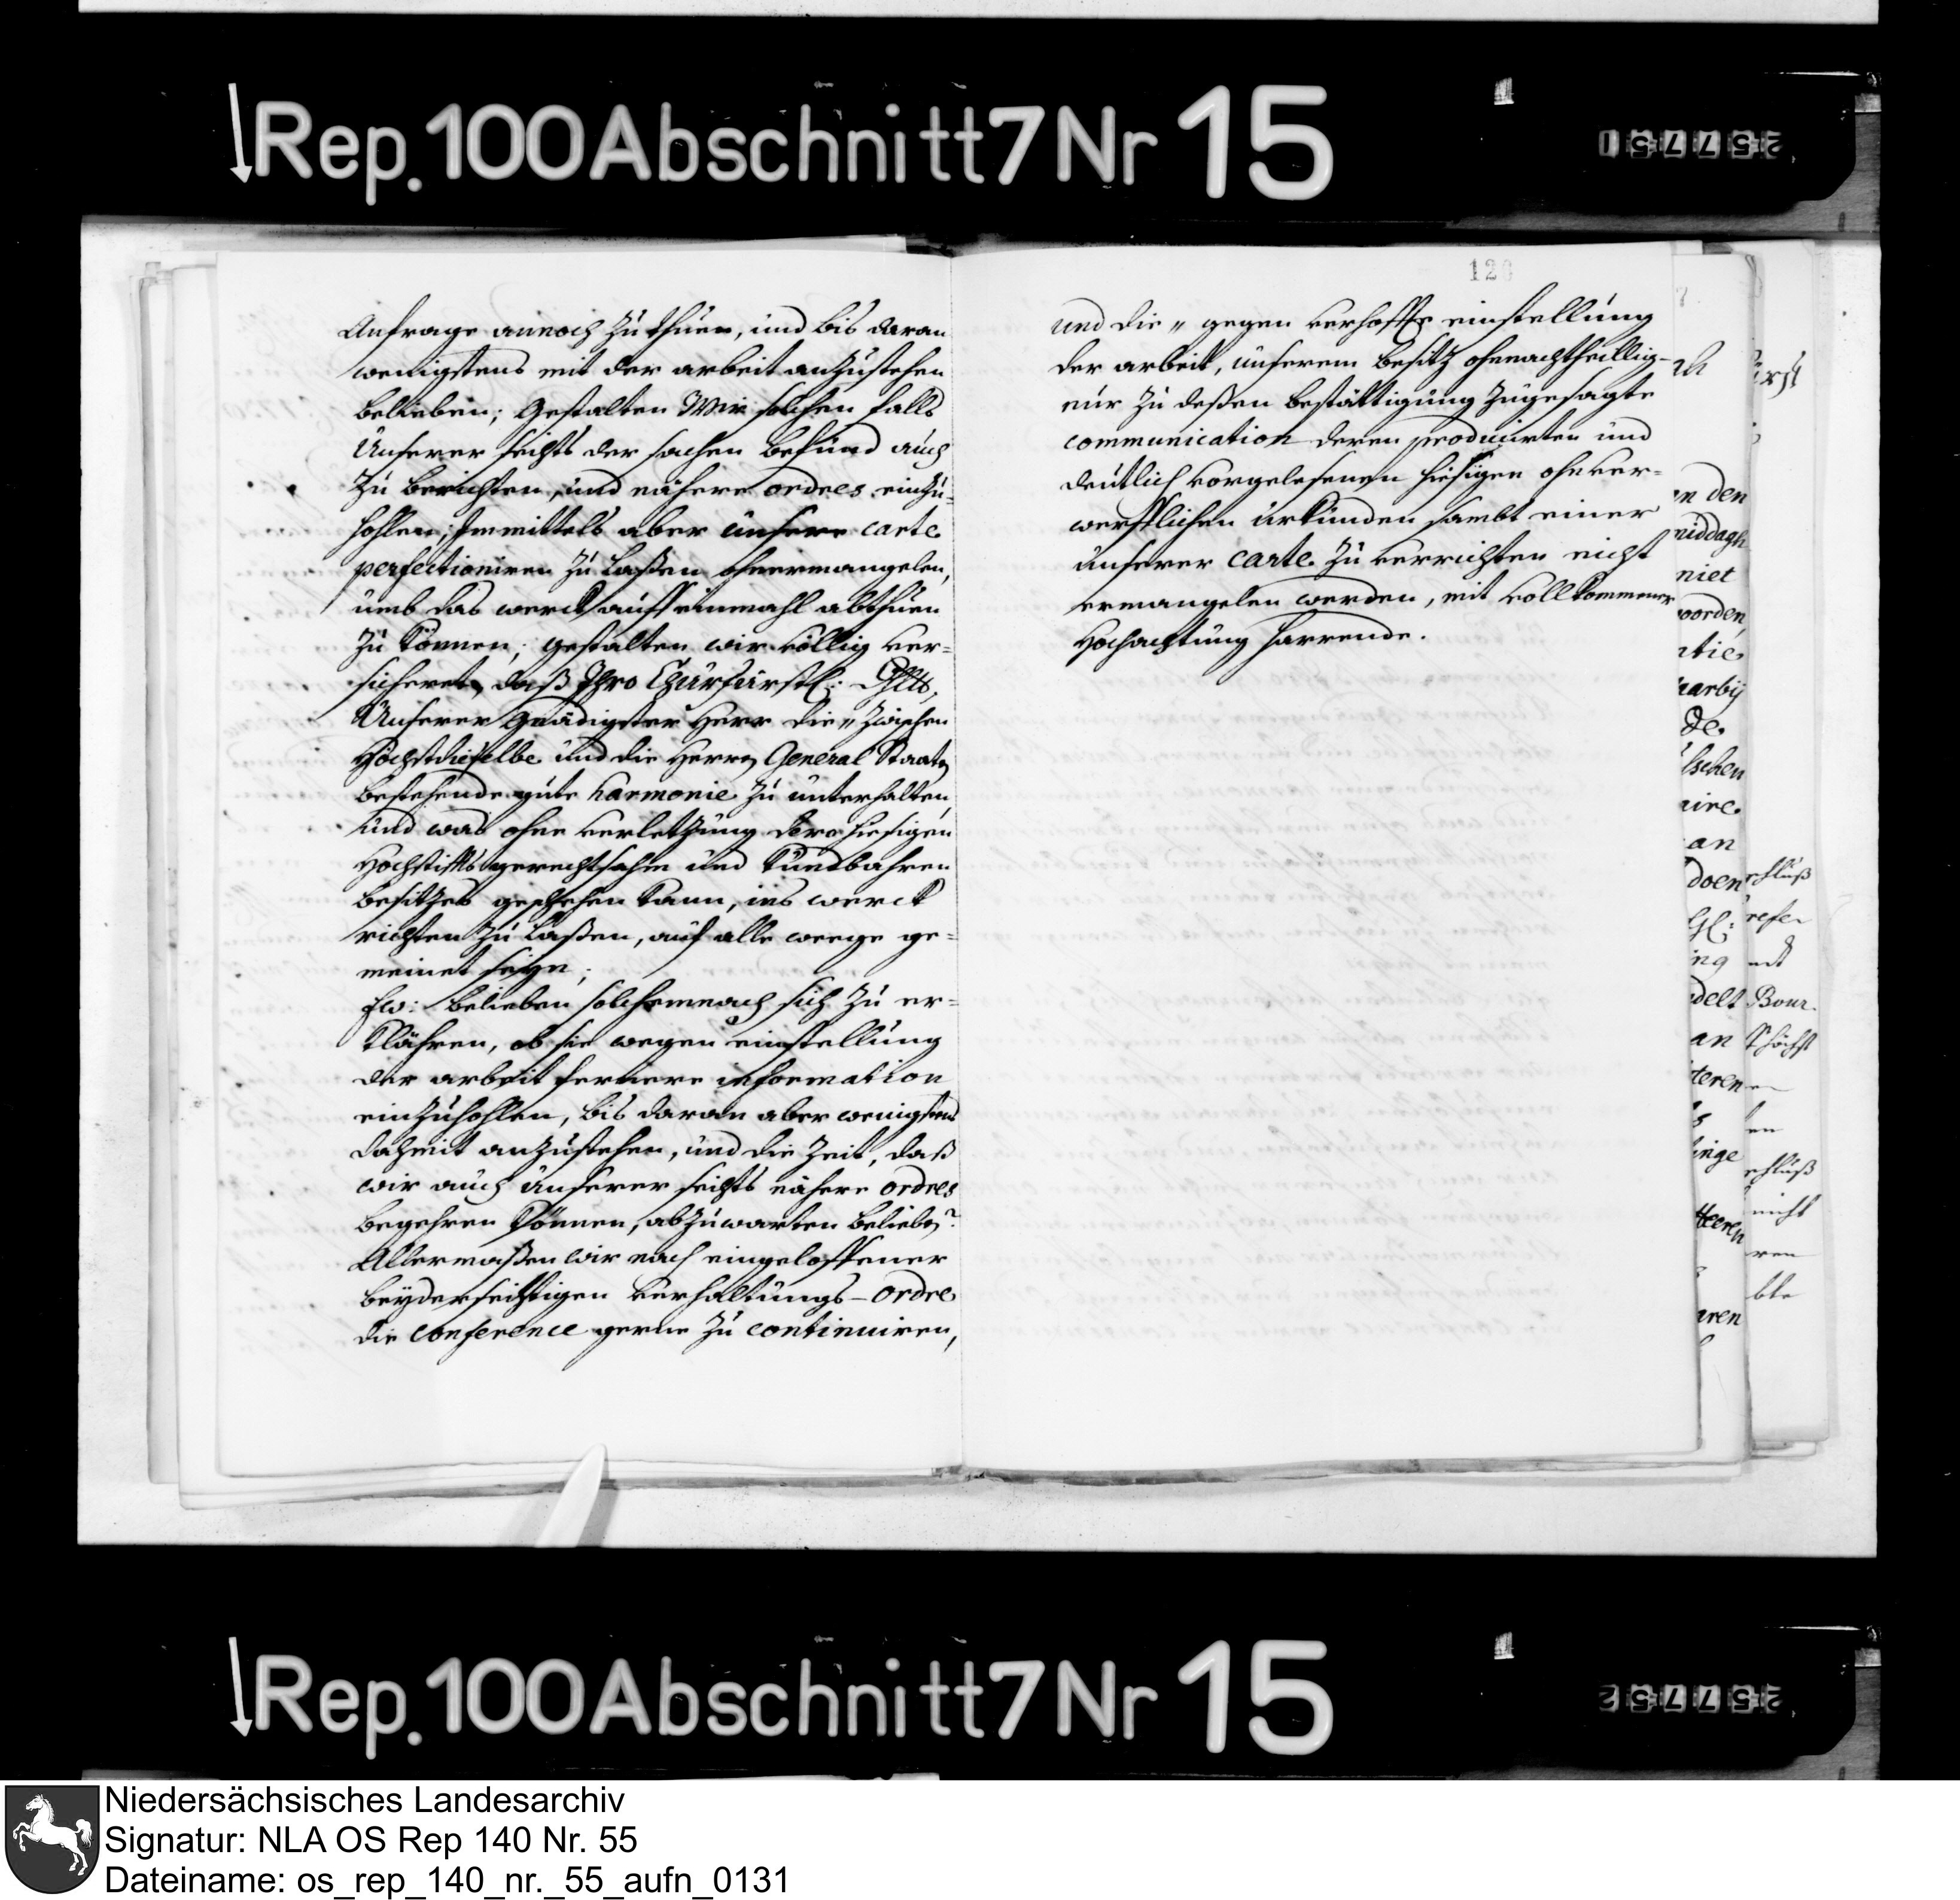 Rep. 100 Abschnitt 7 Nr 15
257751
Anfrage annoch zu thuen, und bis daran
wenigstens mit der arbeit anzustehen
belieben; Gestalten Wir solchen falls
Unserer seiths der sachen befund auch
zu berichten, und nähere ordres einzu-
hohlen; Immittels aber unsere carte
perfectioniren zu laßen ohnermangelen,
umb das werck auff einmahl abthuen
zu können; gestalten wir völlig ver-
sicheret, daß Ihro Churfürstl: Dhltt,
Unserer Gnädigster Herr die „ zwischen
Höchstdieselbe und die Herrn General Staatn
bestehende gute harmonie zu unterhalten,
und was ohne verletzung dero hiesigen
Hochstiffts gerechtsahm und kundbahren
besitzes geschehen kann, ins werck
richten zu laßen, auf alle weege ge-
meinet seye;
Ew: belieben solchemnach sich zu er-
klähren, ob sie wegen einstellung
der arbeit fernere information
einzuhohlen, bis daran aber wenigstens
dahmit anzustehen, und die Zeit, daß
wir auch unserer seiths nähere ordres
begehren können, abzuwarten beliebn?
Allermaßen wir nach eingeloffener
beyderseithigen verhaltungs-ordre
die conference gerne zu continuiren,
120
und die „ gegen verhoffte einstellung
der arbeit, unserem besitz ohnnachtheillig-
nur zu deßen bestättigung zugesagte
communication deren producirten und
deutlich vorgelesenen hiesigen ohnver-
werfflichen urkunden sambt einer
unserer carte zu verrichten nicht
ermangelen werden, mit vollkommener
Hochachtung harrende.
Rep. 100 Abschnitt 7 Nr 15
257752
Niedersächsisches Landesarchiv
Signatur: NLA OS Rep 140 Nr. 55
Dateiname: os_rep_140_nr._55_aufn_0131